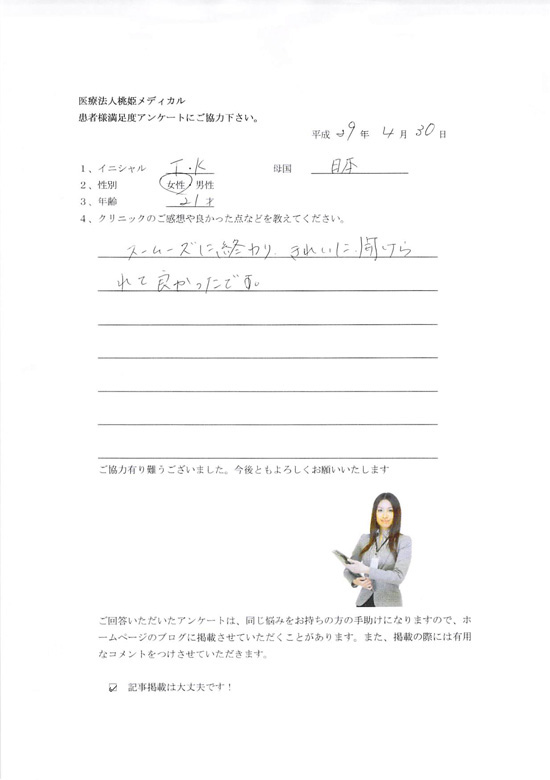 医療法人桃姫メディカル
患者様満足度アンケートにご協力下さい。
平成 29 年 4 月 30 日
1、イニシャル I・K 母国 日本
2、性別 女性・男性
3、年齢 21才
4、クリニックのご感想や良かった点などを教えてください。
スムーズに終わり、きれいに開けら
れて良かったです。
ご協力有り難うございました。今後ともよろしくお願いいたします
ご回答いただいたアンケートは、同じ悩みをお持ちの方の手助けになりますので、ホ
ームページのブログに掲載させていただくことがあります。また、掲載の際には有用
なコメントをつけさせていただきます。
☑ 記事掲載は大丈夫です！